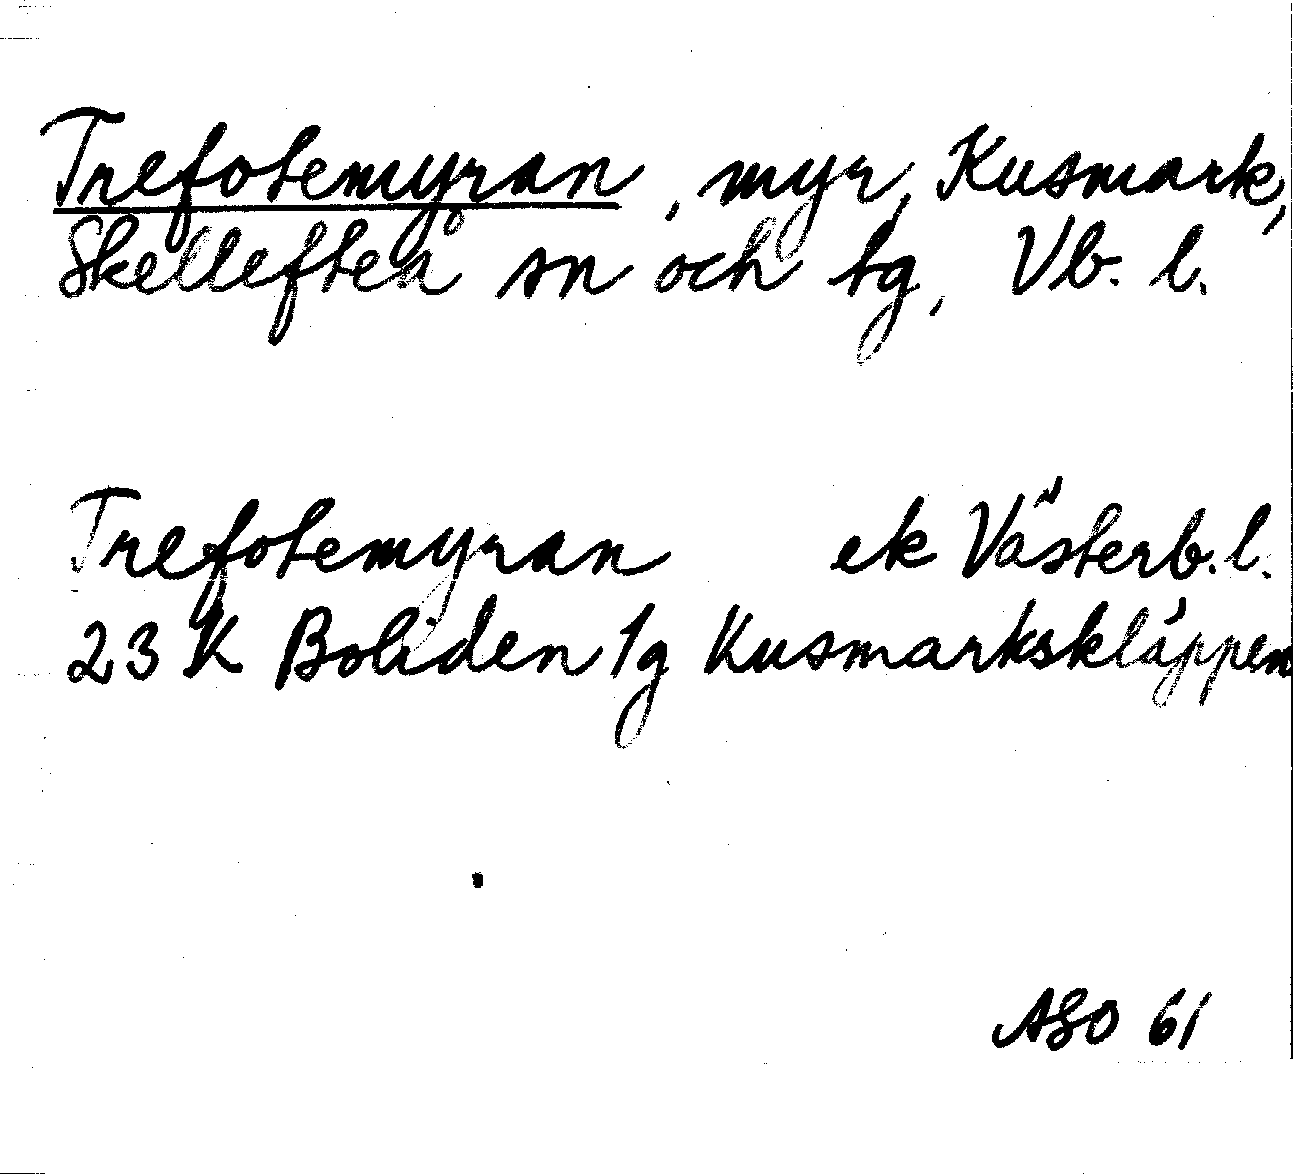 Trefotemyran, myr, Kusmark,
Skellefteå sn och tg, Vb. l.
Trefotemyran ek Västerb. l.
23 K Boliden 1g Kusmarkskläppen
ASO 61